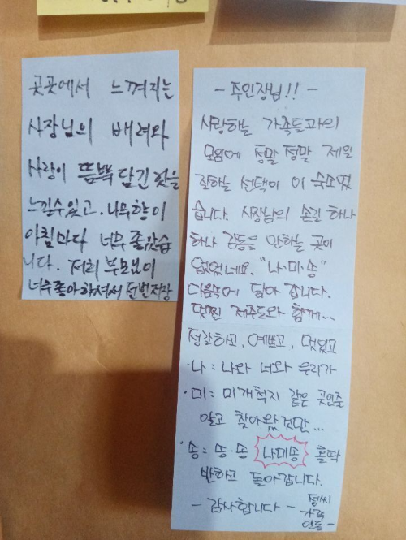 곳곳에서 느껴지는
사장님의 배려와
사랑이 듬뿍 담긴 것을
느낄수있고, 나무향이
아침마다 너무 좋았습
니다. 저희 부모님이
너무 좋아하셔서
- 주인장님!! -
사랑하는 가족들과의
모임에 정말 정말 제일
잘하는 선택이 이 숙소였
습니다. 사장님의 손길 하나
하나 감동을 안하는 곳이
없었네요. "나·미·송"
다음에 담아 갑니다.
멋진 제주도와 함께...
친절하고, 예쁘고, 멋있고
나: 나와 너와 우리가
·미: 미개척지 같은 곳인줄
알고 찾아왔건만...
·송: 송송 나미송 홀딱
반하고 돌아갑니다.
- 감사합니다 -